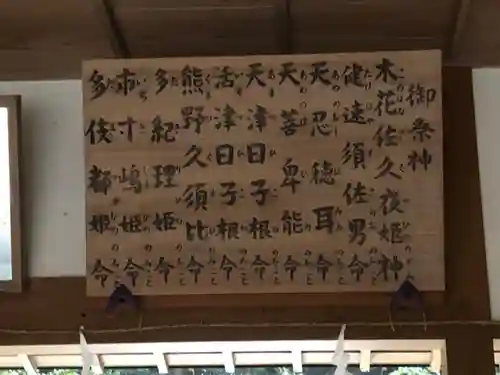 御祭神
木花佐久夜姫神
健速須佐男命
天忍穂耳命
天菩卑能命
天津日子根命
活津日子根命
熊野久須比命
多紀理姫命
市寸嶋姫命
多伎都姫命